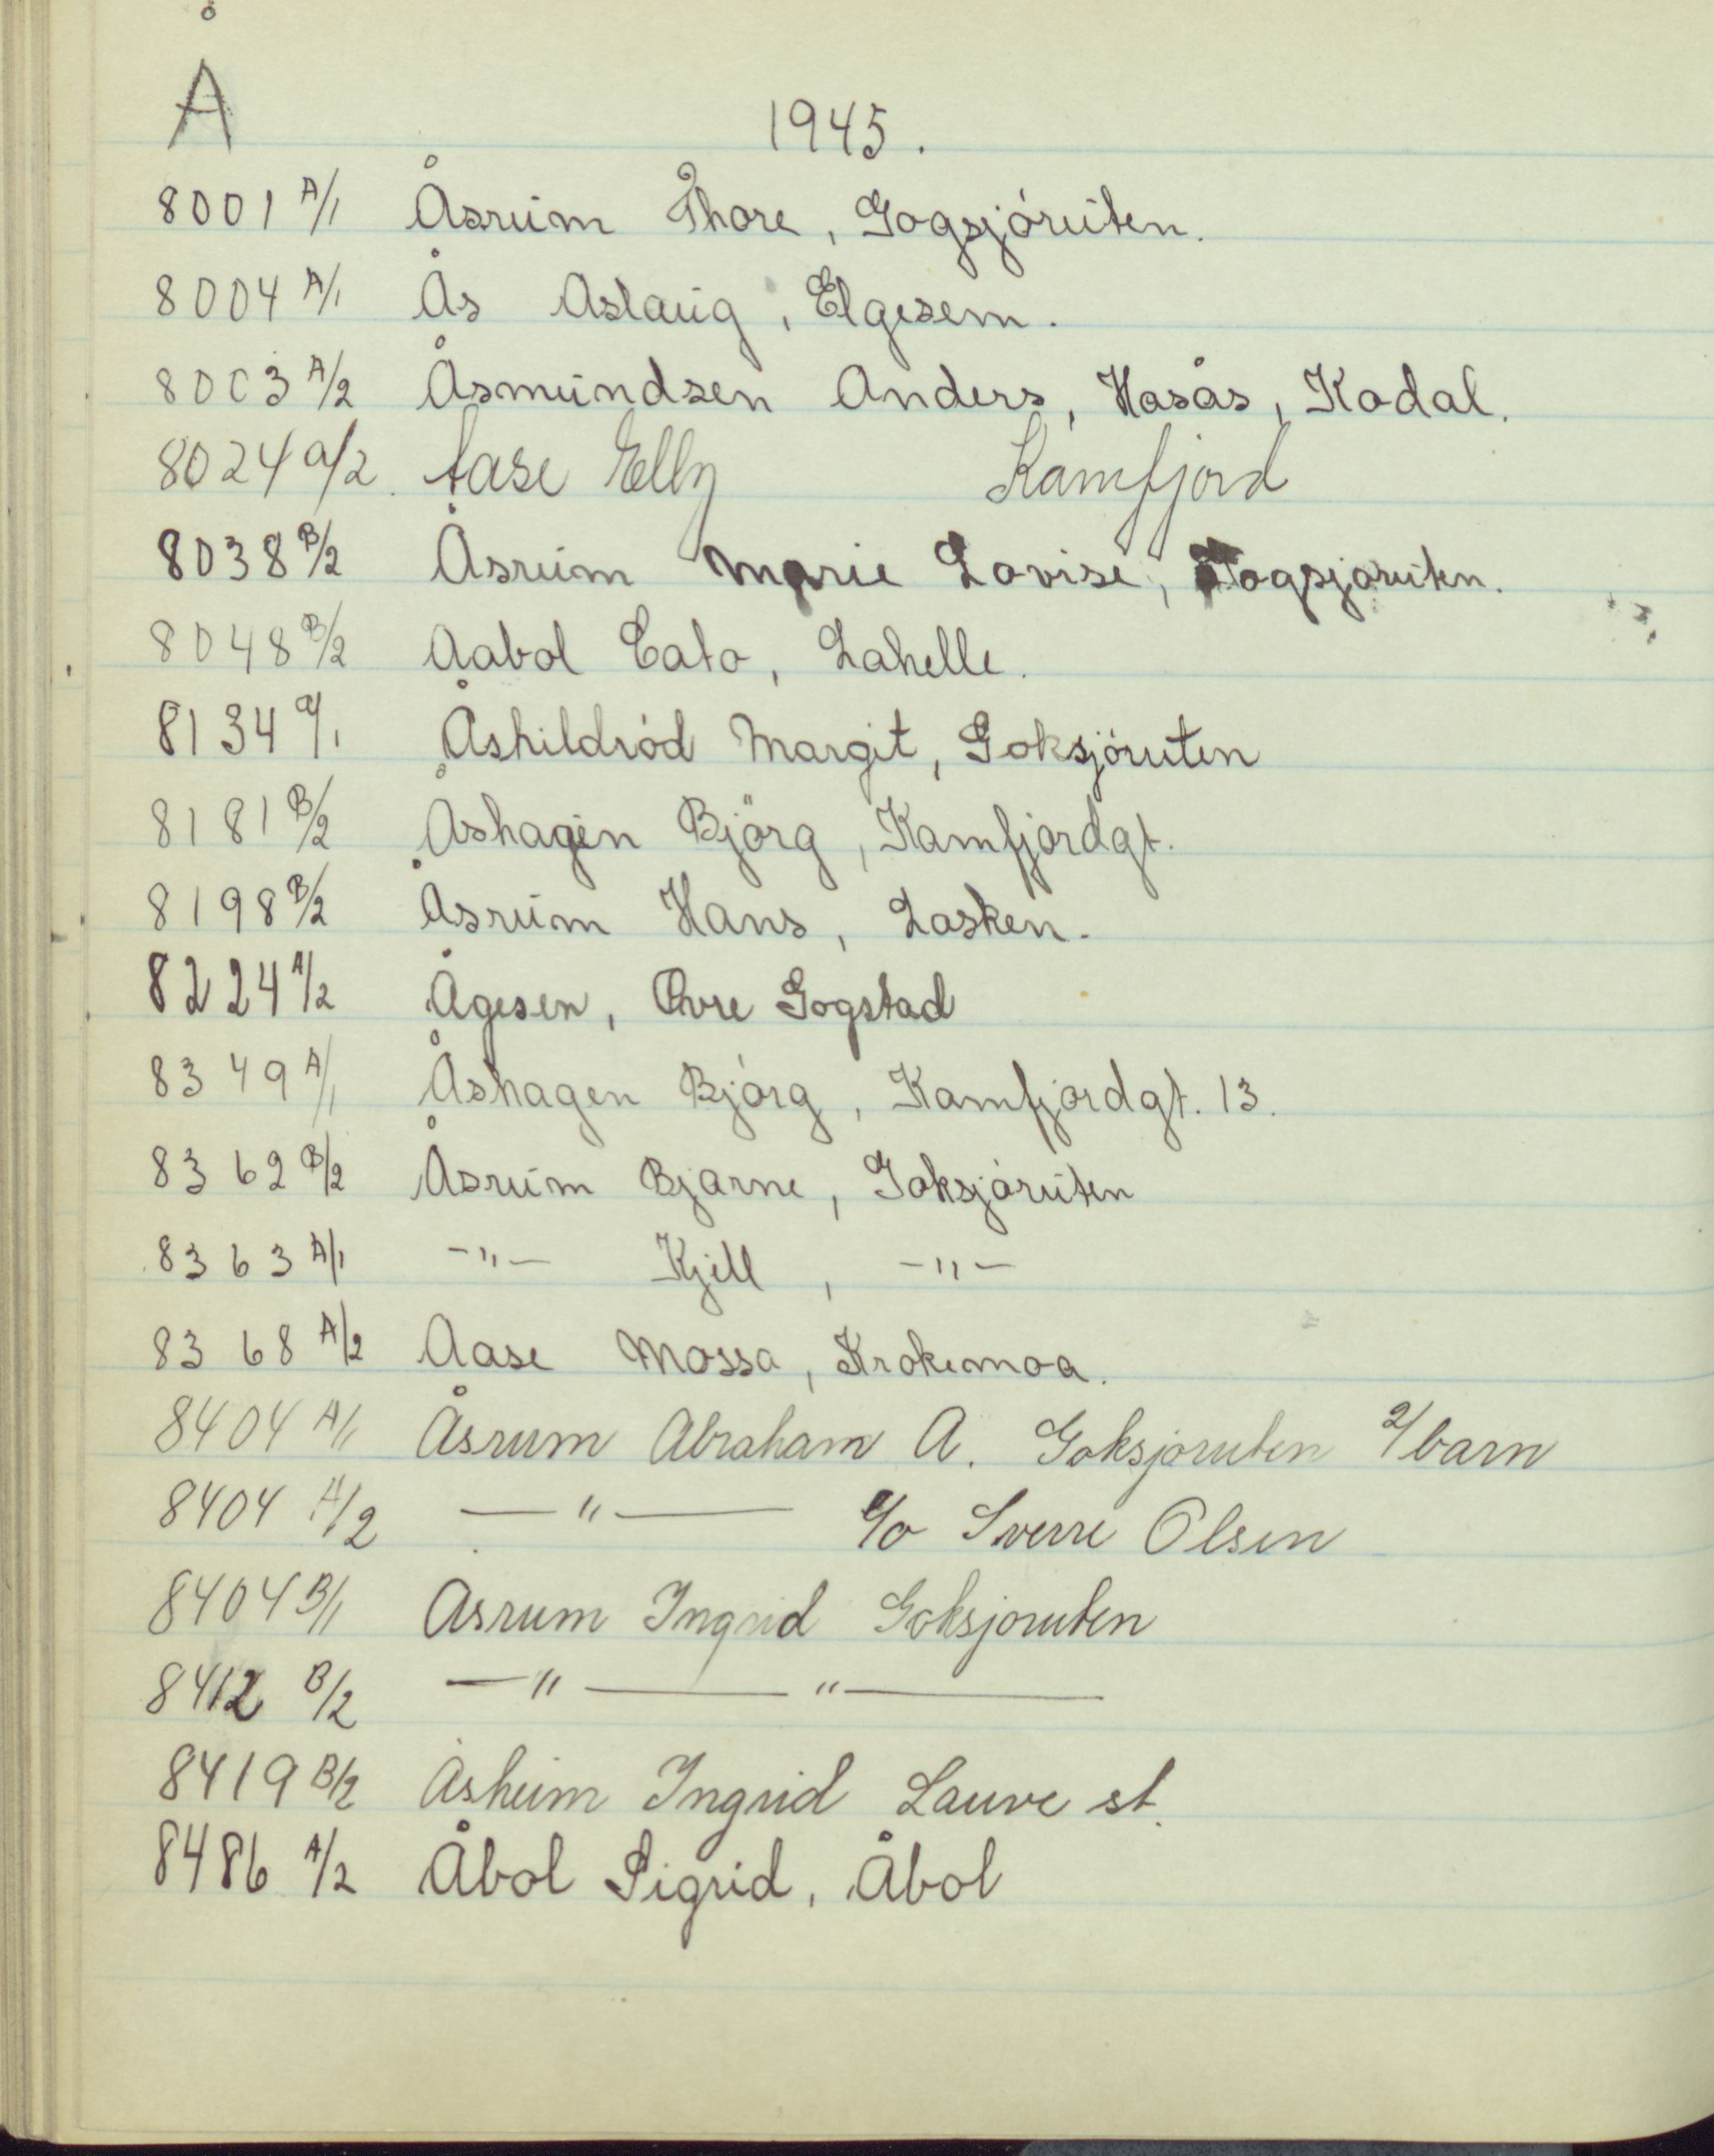 Å
1945.
8001 A/1 Åsrum Thore, Gogsjöruten.
8004 A/1 Ås Aslaug, Elgesem.
8003 A/2 Åsmundsen Anders, Hasås, Kodal.
8024 a/2. Aase Elly Kamfjord
8038 B/2 Åsrum Marie Lovise, Gogsjøruten.
8048 B/2 Aabol Cato, Lahelle.
8134 a/1. Åshildröd Margit, Goksjöruten
8181 B/2 Åshagen Björg, Kamfjordgt.
8198 B/2 Åsrum Hans, Lasken.
8224 A/2 Ågesen, Øvre Gogstad
8349 A/1 Åshagen Bjórg, Kamfjordgt. 13.
8362 B/2 Åsrum Bjarne, Goksjöruten
8363 A/1 -"- Kjell, -"-
8368 A/2 Aase Mossa, Krokemoa.
8404 A/1 Åsrum Abraham A. Goksjøruten 2/barn
8404 A/2 — " — c/o Sverre Olsen
8404 B/1 Asrum Ingrid Goksjoruten
8412 B/2 — " — " —
8419 B/2 Åsheim Ingrid Lauve st.
8486 A/2 Åbol Sigrid, Åbol